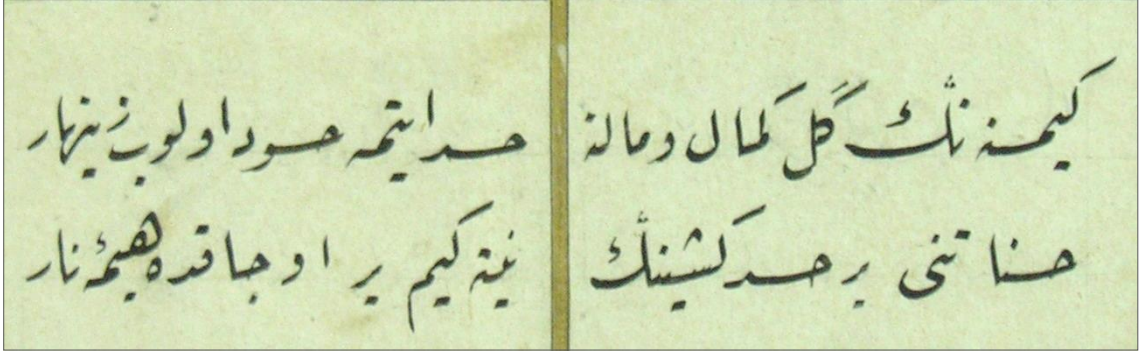 كیمسه نڭ گل كمال و مالنه
حسد ایتمه حسود اولوب زینهار
حسناتنی یر حسد كشینڭ
نیته كیم یر اوجاقده هیمهٔ نار